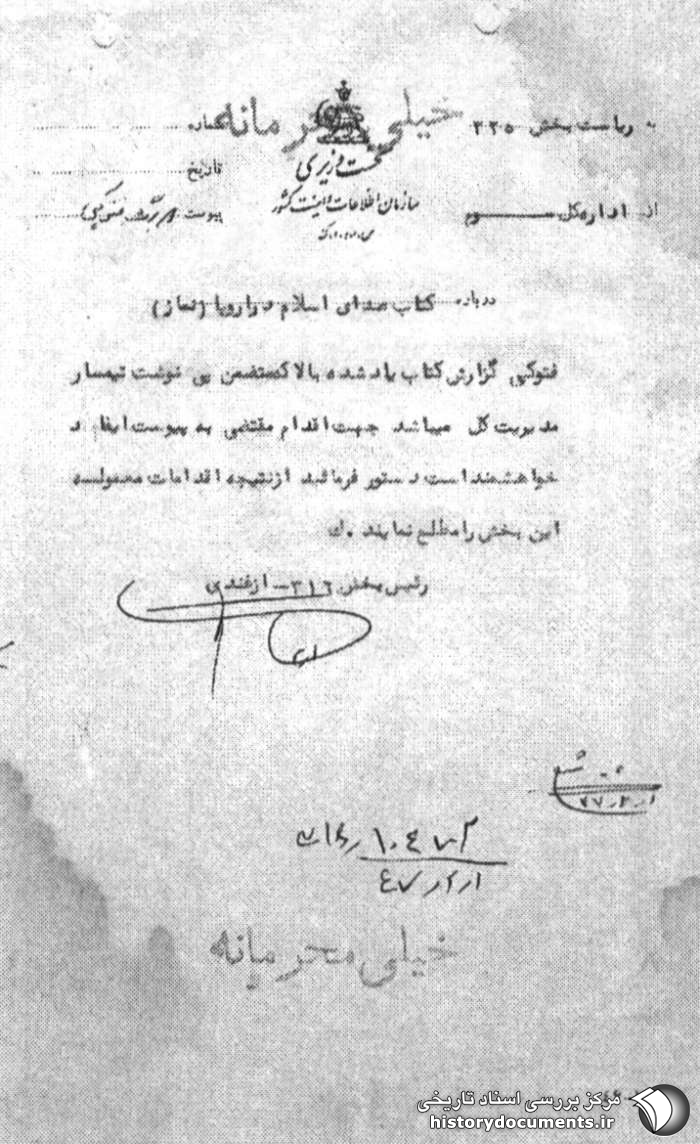 خیلی محرمانه
به ریاست بخش ۳۲۵
شماره
نخست وزیری
تاریخ
سازمان اطلاعات و امنیت کشور
از اداره کل سوم
پیوست برگ فتوکپی
درباره کتاب صدای اسلام در اروپا (نماز)
فتوکپی گزارش کتاب یاد شده بالا که متضمن پی نوشت تیمسار
مدیریت کل میباشد جهت اقدام مقتضی به پیوست ایفاد
خواهشمند است دستور فرمائید از نتیجه اقدامات معموله
این بخش را مطلع نمایند . ک
رئیس بخش ۳۱۶ - ازغندی
۴۷
خیلی محرمانه
مرکز بررسی اسناد تاریخی
historydocuments.ir